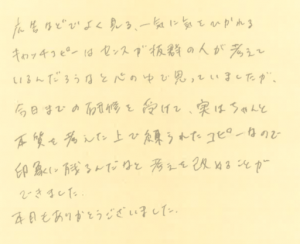 広告などでよく見る、一気に気をひかれる
キャッチコピーはセンスが抜群の人が考えて
いるんだろうなと心の中で思っていましたが、
今日までの を受けて、実はちゃんと
本質を考えた上で練られたコピーなので
印象に残るんだなと考えを改めることが
できました。
本日もありがとうございました。